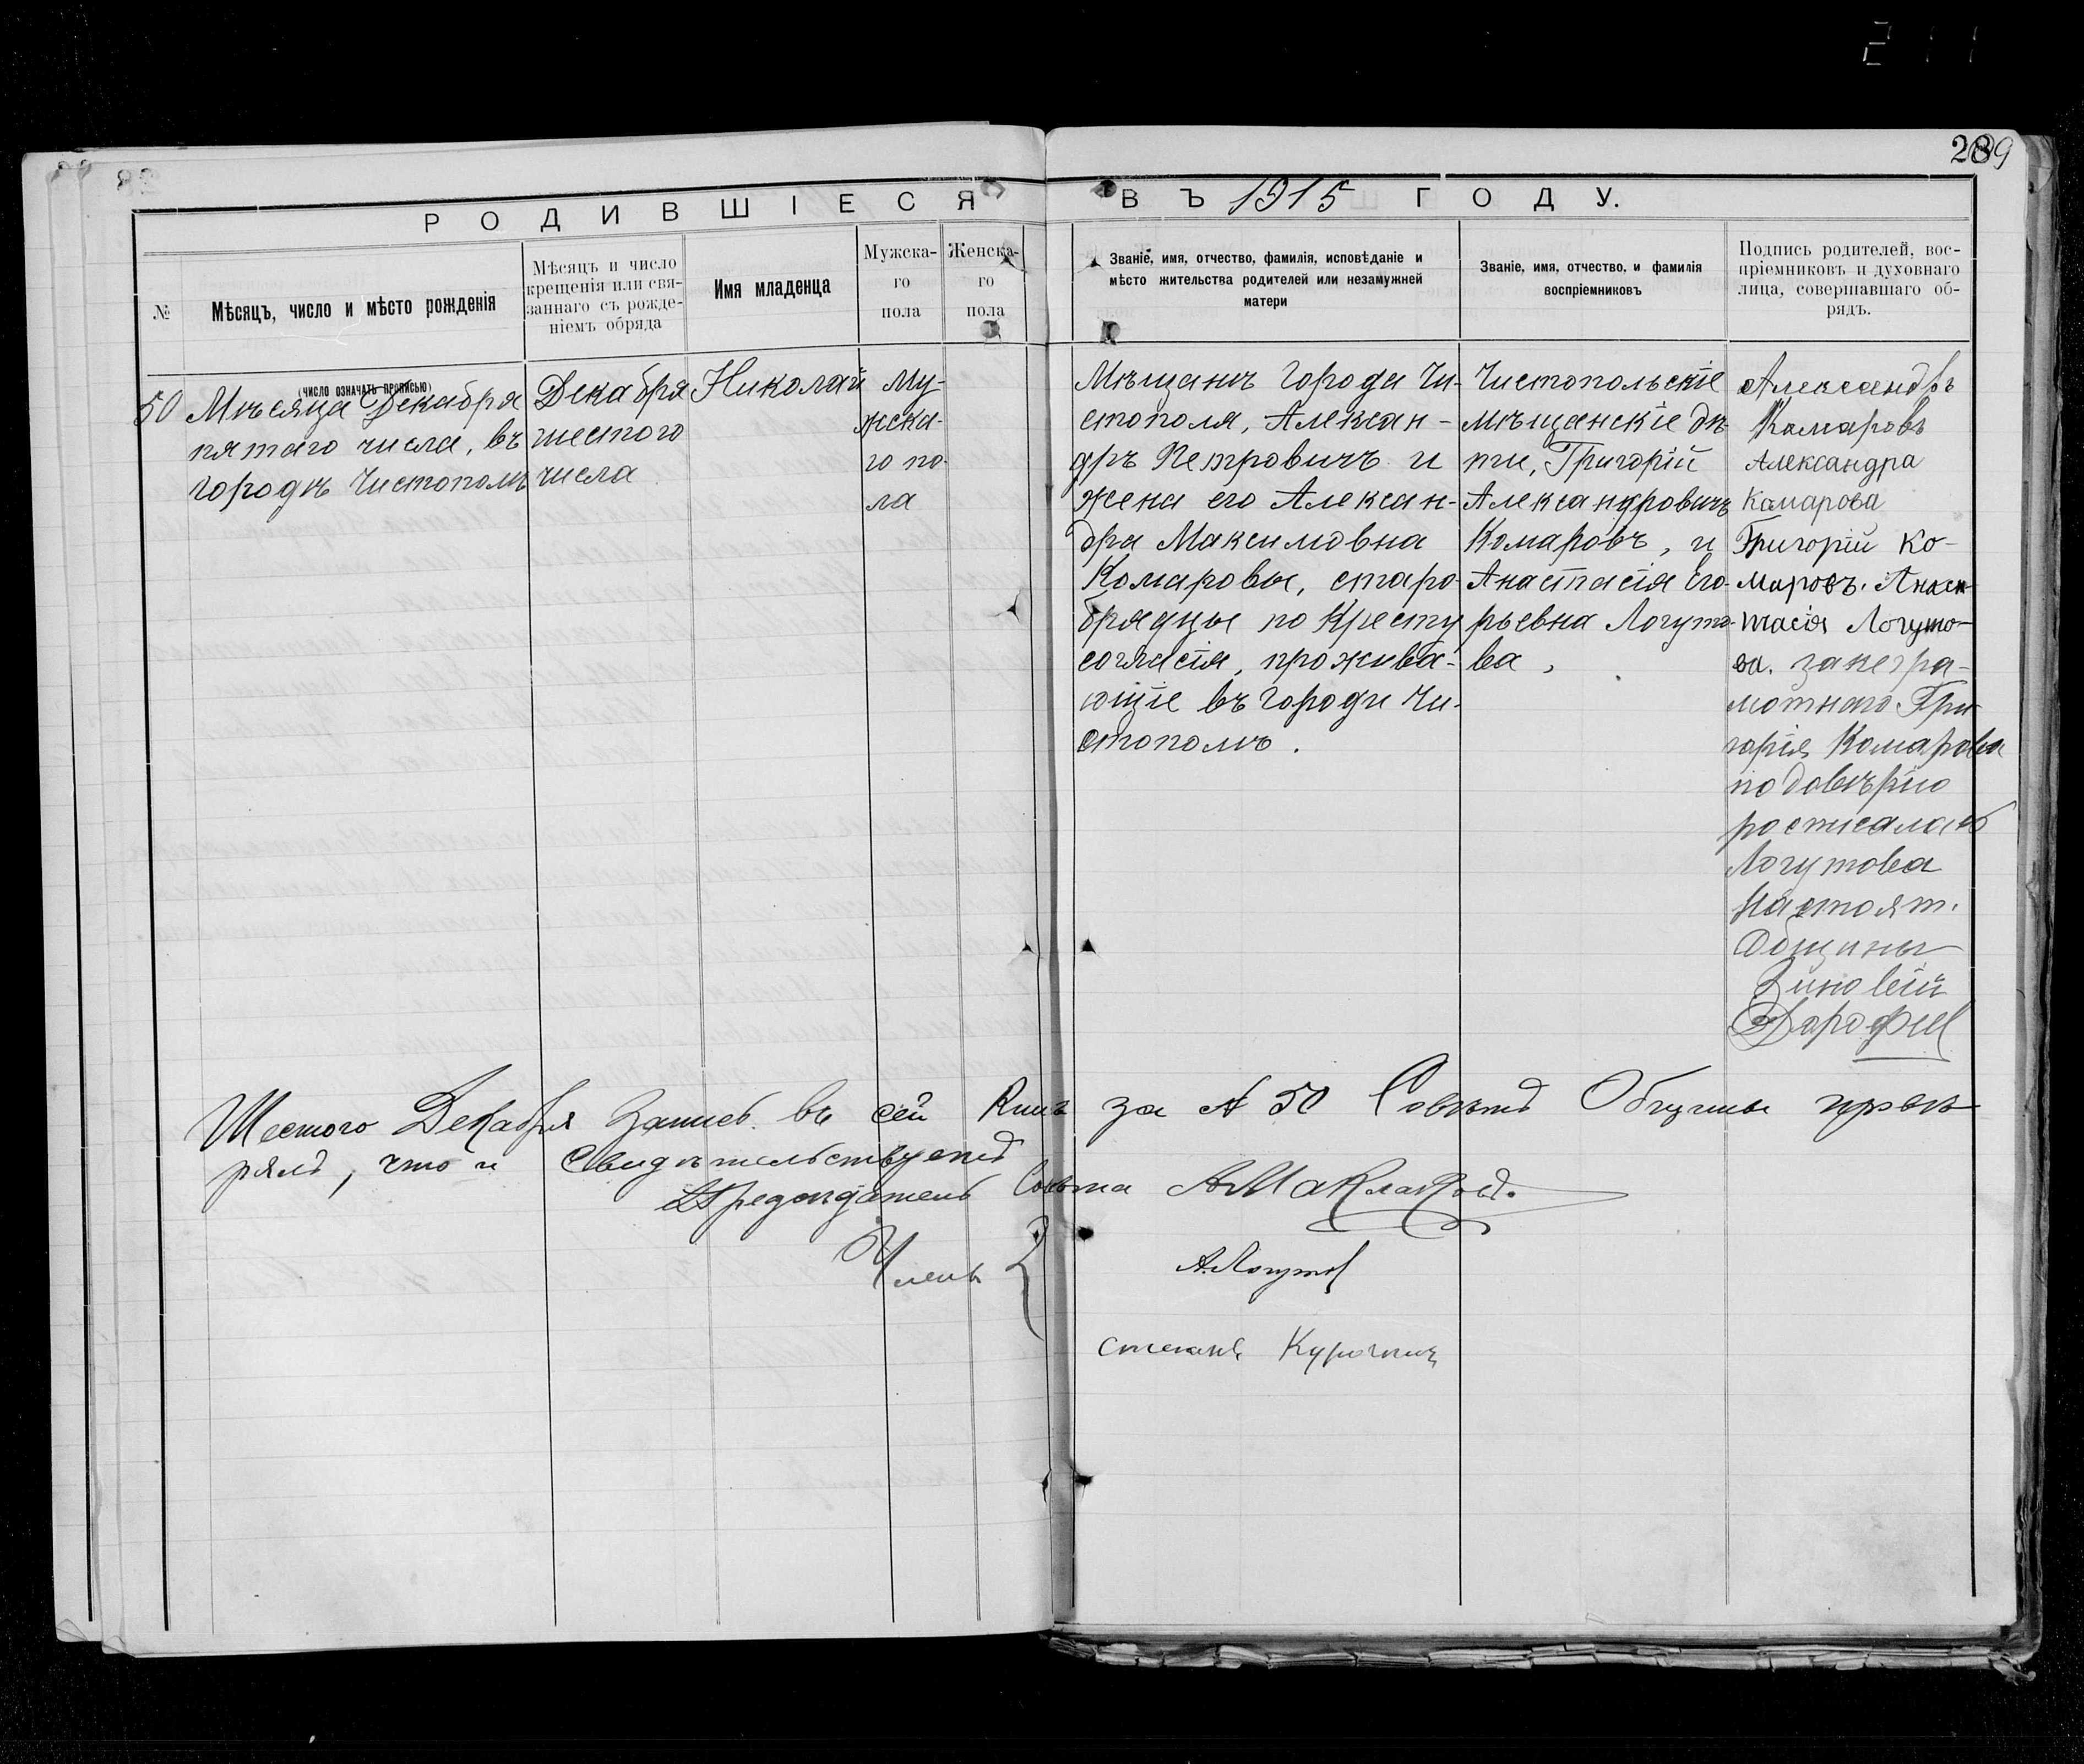 211
289
РОДИВШІЕСЯ ВЪ 1915 ГОДУ.
№
Мѣсяцъ, число и мѣсто рожденія
(число означать прописью)
Мѣсяцъ и число
крещенія или свя-
заннаго съ рожде-
ніемъ обряда
Имя младенца
Мужска-
го
пола
Женска-
го
пола
Званіе, имя, отчество, фамилія, исповѣданіе и
мѣсто жительства родителей или незамужней
матери
Званіе, имя, отчество, и фамилія
воспріемниковъ
Подпись родителей, вос-
пріемниковъ и духовнаго
лица, совершавшаго об-
рядъ.
50
Мѣсяца Декабря
пятаго числа, въ
городѣ Чистополѣ
Декабря
шестого
числа
Николай
му-
жска-
го по-
ла
Мѣщанъ города Чи-
стополя, Алексан-
дръ Петровичъ и
жена его Алексан-
дра Максимовна
Комаровы, старо-
брядцы по Кресту
согласія, прожива-
ющіе въ городи Чи-
стополѣ.
Чистопольскіе
мѣщанскіе дѣ-
ти, Григорій
Александровичъ
Комаровъ, и
Анастасія Его-
рьевна Логуто-
ва,
Александъ
Комаровъ
Александра
Камарова
Григорій Ко-
маровъ. Анас-
тасія Логуто-
ва. занегра-
мотнаго Гри
горія Комарова
по довѣрію
росписалась
Логутова
Настоят.
Общины
Зиновій
Дорофѣев
Шестого Декабря запись въ сей Книгѣ за № 50 Совѣтъ Общины провѣ-
рялъ, что и свидѣтельствуетъ
Предсѣдатель Совѣта А. Маклаковъ.
Члены { А. Логутов
Степанъ Курочкинъ